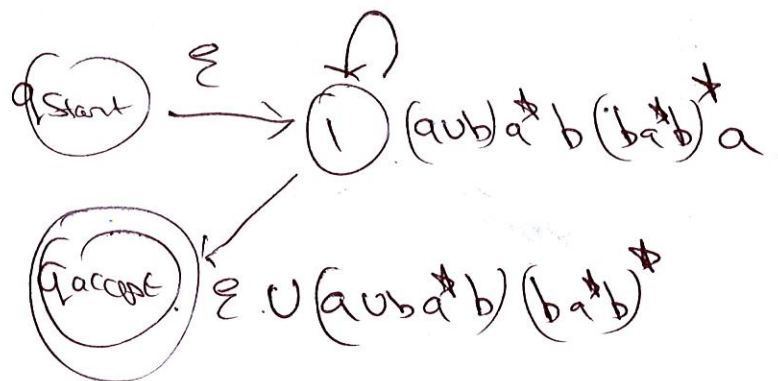 ε
q start 1 (a∪b)a* b (ba*b)* a
q accept ε ∪ (a∪ba*b) (ba*b)*